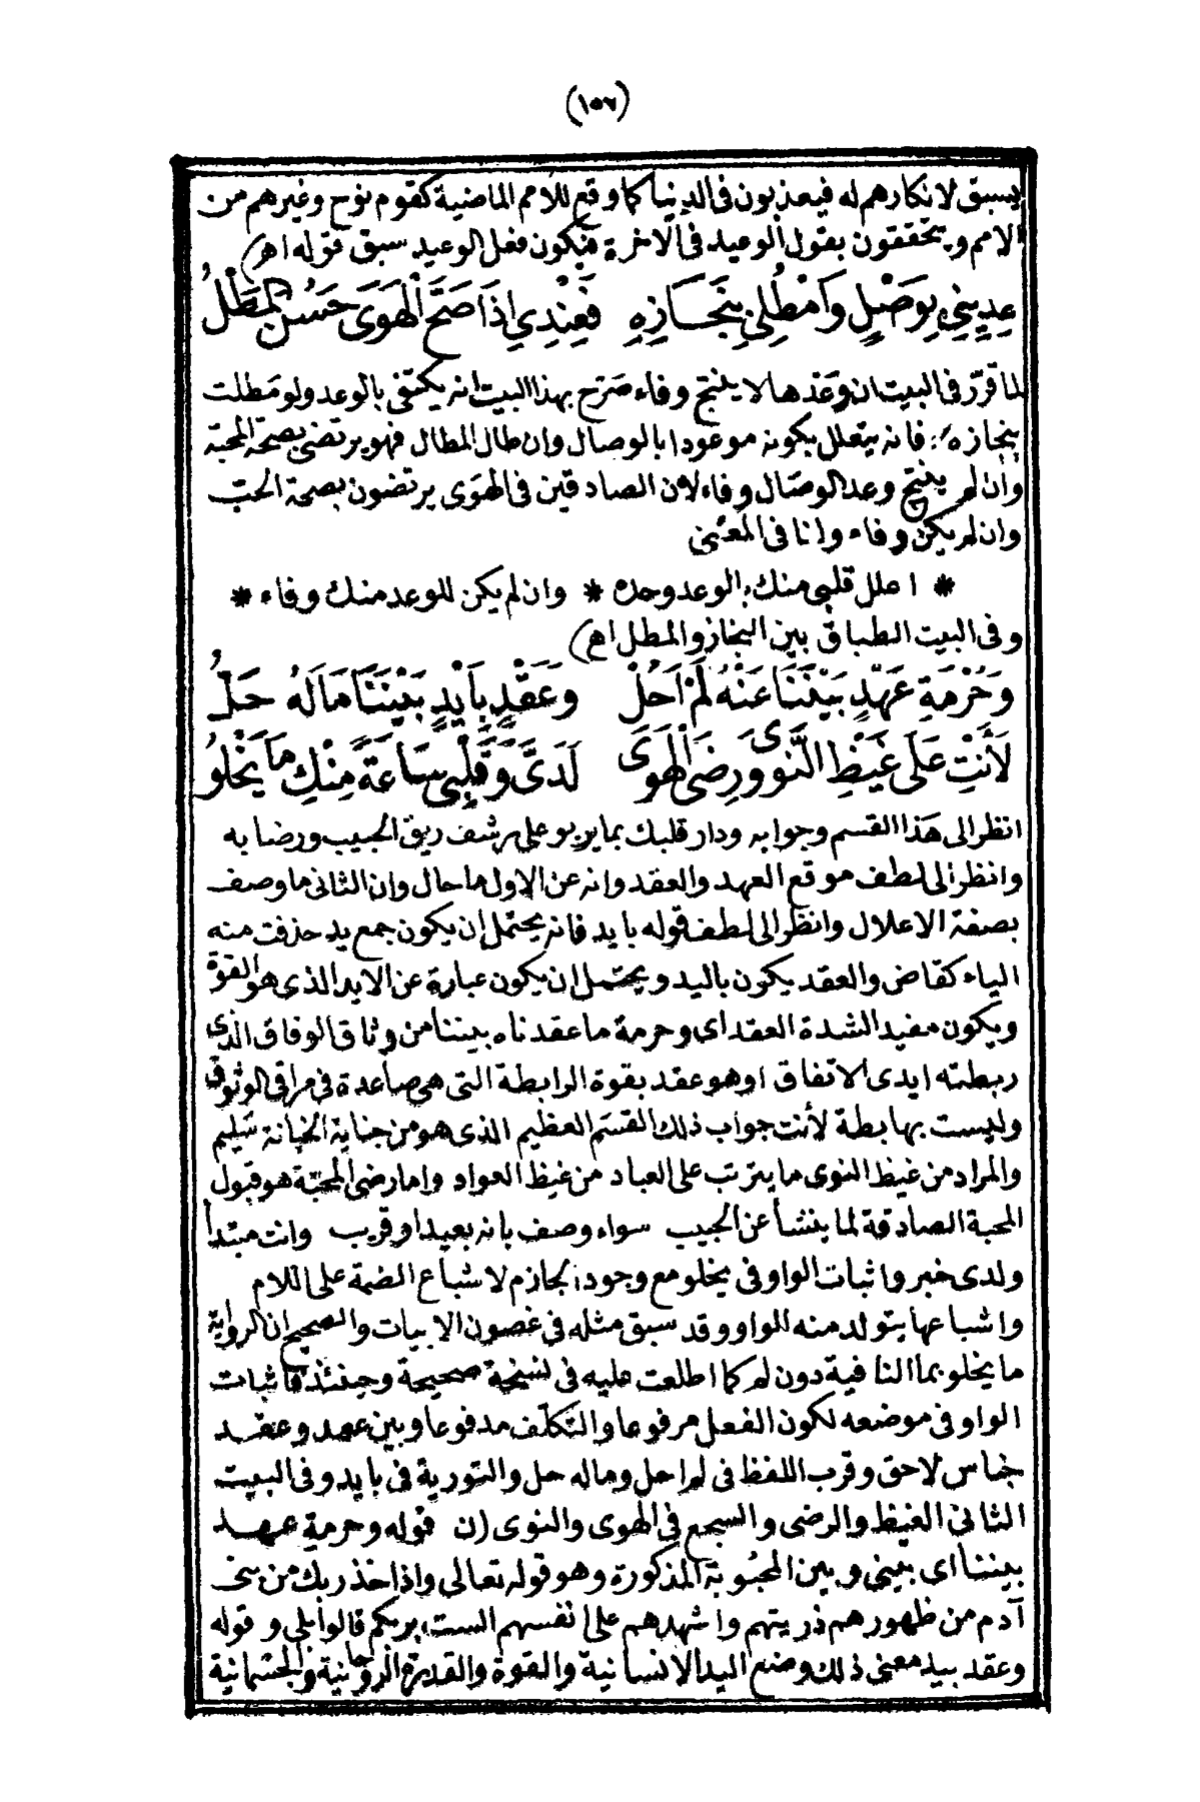 (١٥٦)
يسبق لانكارهم له فيعذبون فى الدنيا كما وقع للامم الماضية كقوم نوح وغيرهم من
الامم ويتحققون بقول الوعيد فى الآخرة فيكون فعل الوعيد سبق قوله اهـ)
عِدِينِي بِوَصْلٍ وَامْطُلِي بِنَجَازِهِ فَعِنْدِي اِذَا صَحَّ الْهَوَى حَسُنَ الْمَطْلُ
لما قرّر فى البيت ان وَعْدها لا ينتج وفاء صَرّح بهذا البيت انه يكتفى بالوعد ولو مَطلت
بنجازه فانه يتعلل بكونه موعودا بالوصال وان طال المطال فهو يرتضى بصحة المحبّة
وان لم ينتج وعد الوصَال وفاء لان الصادقين فى الهوَى يرتضون بصحة الحبّ
وان لم يكن وفاء وانا فى المعنى
* اعلل قلبى منك بالوعد وحده * وان لم يكن للوعد منك وفاء *
وفى البيت الطباق بين النجاز والمطل اهـ)
وَحُرْمَةِ عَهْدٍ بَيْنَنَا عَنْهُ لَمْ اَحُلْ وَعَقْدٍ بِاَيْدٍ بَيْنَنَا مَا لَهُ حَلُّ
لَأَنْتِ عَلَى غَيْظِ النَّوَى وَرِضَى الْهَوَى لَدَىَّ وَقَلْبِى سَاعَةً مِنْكِ مَا يَخْلُو
انظر الى هَذا القسم وجوابه ودار قلبك بما يربو على رشف ريق الحبيب ورضابه
وانظر الى لطف موقع العهد والعقد وانه عن الاول ما حال وان الثانى ما وصف
بصفة الاعلال وانظر الى لطف قوله بايد فانه يحتمل ان يكون جمع يد حذفت منه
الياء كقاض والعقد يكون باليد ويحتمل ان يكون عبارة عن الايد الذى هو القوة
ويكون مفيد الشدة العقد اى وحرمة ما عقدناه بيننا من وثاق الوفاق الذى
ربطته ايدى الاتفاق اوهو عقد بقوة الرابطة التى هى صاعدة فى مراقى الوثوق
وليست بهابطة لأنت جواب ذلك القسَم العظيم الذى هو من جناية الخيانة سَليم
والمراد من غيظ النوى ما يترتب على العباد من غيظ العواد واما رضى المحبّة هو قبول
المحبة الصادقة لما ينشأ عن الحبيب سواء وصف بانه بعيد او قريب وانت مبتدأ
ولدى خبر واثبات الواو فى يخلو مع وجود الجازم لاشباع الضمة على اللام
واشباعها يتولد منه الواو وقد سبق مثله فى غصون الابيات والصحيح ان الرواية
ما يخلو بما النافية دون لم كما اطلعت عليه فى نسخة صحيحة وحينئذ فاثبات
الواو فى موضعه لكون الفعل مرفوعا والتكلّف مدفوعا وبين عهد وعقد
جناس لاحق وقرب اللفظ فى لم احل وماله حل والتورية فى بايد وفى البيت
الثانى الغيظ والرضى والسجع فى الهوى والنوى (ن قوله وحرمة عهد
بيننا اى بينى وبين المحبُوبة المذكورة وهو قوله تعالى واذ اخذ ربك من بنى
آدم من ظهورهم ذريتهم واشهدهم على انفسهم الست بربكم قالوا بلى وقوله
وعقد بيد معنى ذلك وضع اليد الانسانية والقوة والقدرة الروحانية والجسمانية